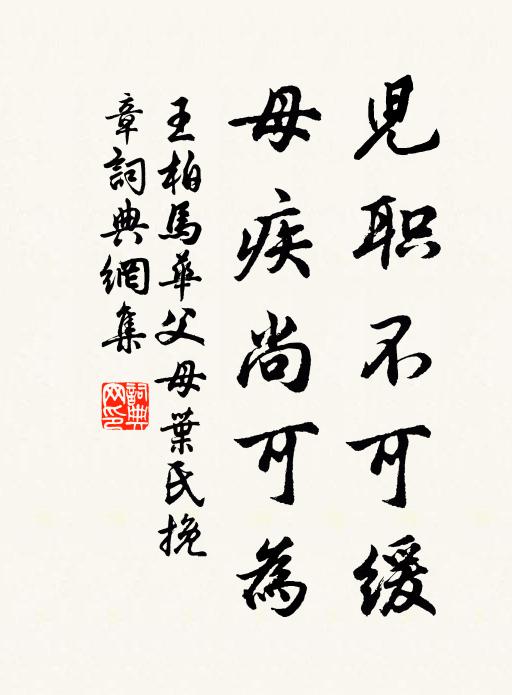 兒职不可緩
母疾尚可為
王柏馬華父母葉氏挽
章詞典網集
詞典
网印